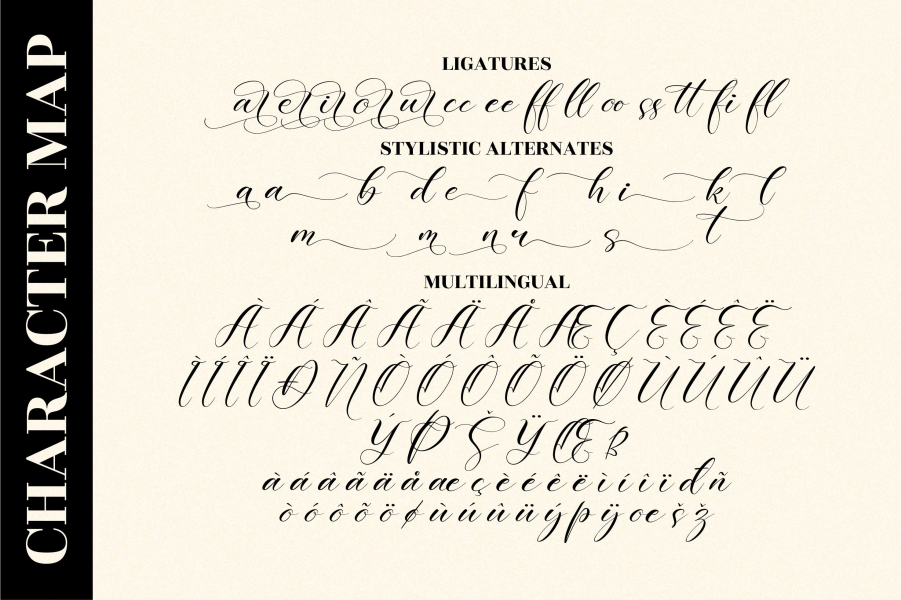 CHARACTER MAP
LIGATURES
ar er ir or ur cc ee ff ll oo ss tt fi fl
STYLISTIC ALTERNATES
a a b d e f h i k l
m m n u s t
MULTILINGUAL
À Á Â Ã Ä Å Æ Ç È É Ê Ë
Ì Í Î Ï Ð Ñ Ò Ó Ô Õ Ö Ø Ù Ú Û Ü
Ý Þ Š Ÿ Œ ß
à á â ã ä å æ ç è é ê ë ì í î ï đ ñ
ò ó ô õ ö ø ù ú û ü ý þ ÿ œ š ž